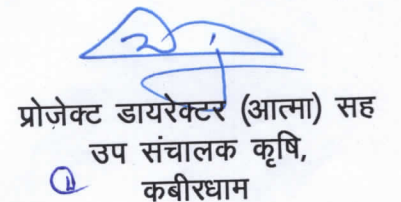 प्रोजेक्ट डायरेक्टर (आत्मा) सह
उप संचालक कृषि,
कबीरधाम